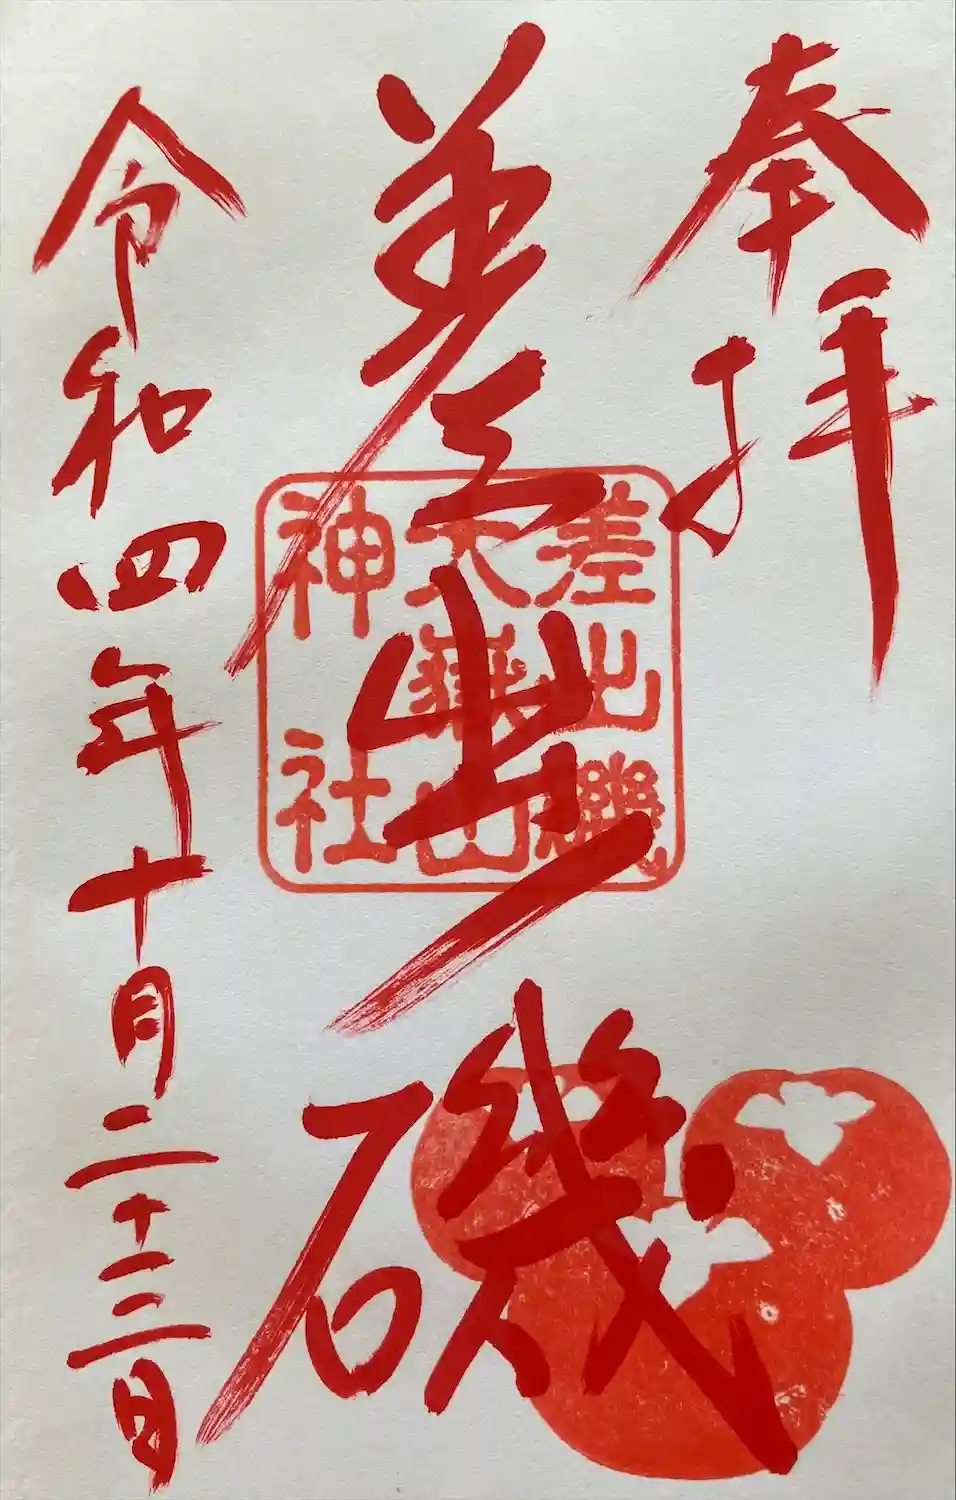 奉拝
差出磯
差出磯
大嶽山
神社
令和四年十月二十三日